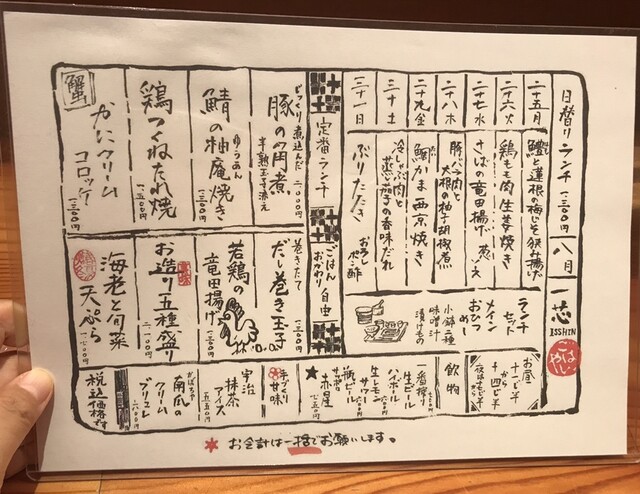 日替りランチ 一三〇〇円 八月
二十五月 鱧と蓮根の梅じそ挟み揚げ
二十六火 鶏もも肉生姜焼き
二十七水 さばの竜田揚げ 葱ソース
二十八木 豚バラ肉と大根の柚子胡椒煮
二十九金 鰤かま西京焼き
三十土 冷しゃぶ肉と蒸し茄子の香味だれ
三十一日 ぶりたたき おろしポン酢
一芯
ISSHIN
こばやし
ランチセット
メイン
おひつめし
小鉢二種
味噌汁
漬けもの
お昼
十一時半から
十四時半
定番ランチ
ごはんおかわり自由
じっくり煮込んだ
豚の角煮
半熟玉子添え
一、二〇〇円
鯖の柚庵焼き
ゆうあん
一、三〇〇円
鶏つくねたれ焼
一、一五〇円
蟹
かにクリームコロッケ
一、三〇〇円
巻きたて
だし巻き玉子
若鶏の竜田揚げ
お造り五種盛り
海老と旬菜天ぷら
飲物
一番搾り
生ビール
ハイボール
生レモンサワー
瓶ビール
サッポロ赤星
手づくり甘味
宇治抹茶アイス
五五〇円
かぼちゃ
南瓜のクリームブリュレ
税込価格です
★お会計は一括でお願いします。